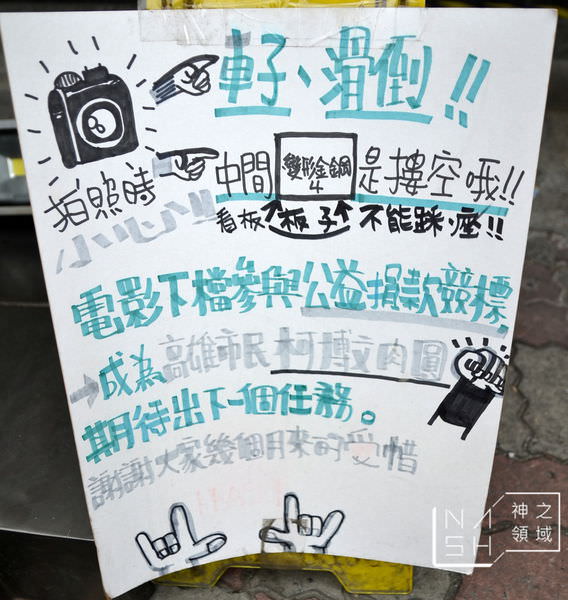 車子、滑倒!!
拍照時
小心!!
中間 變形金鋼4 是摟空哦!!
看板 板子 不能踩、座!!
電影下檔參與公益捐款競標,
→成為高雄市民柯博文肉圓
期待出下一個任務。
謝謝大家幾個月來的愛惜
NASH 神之領域